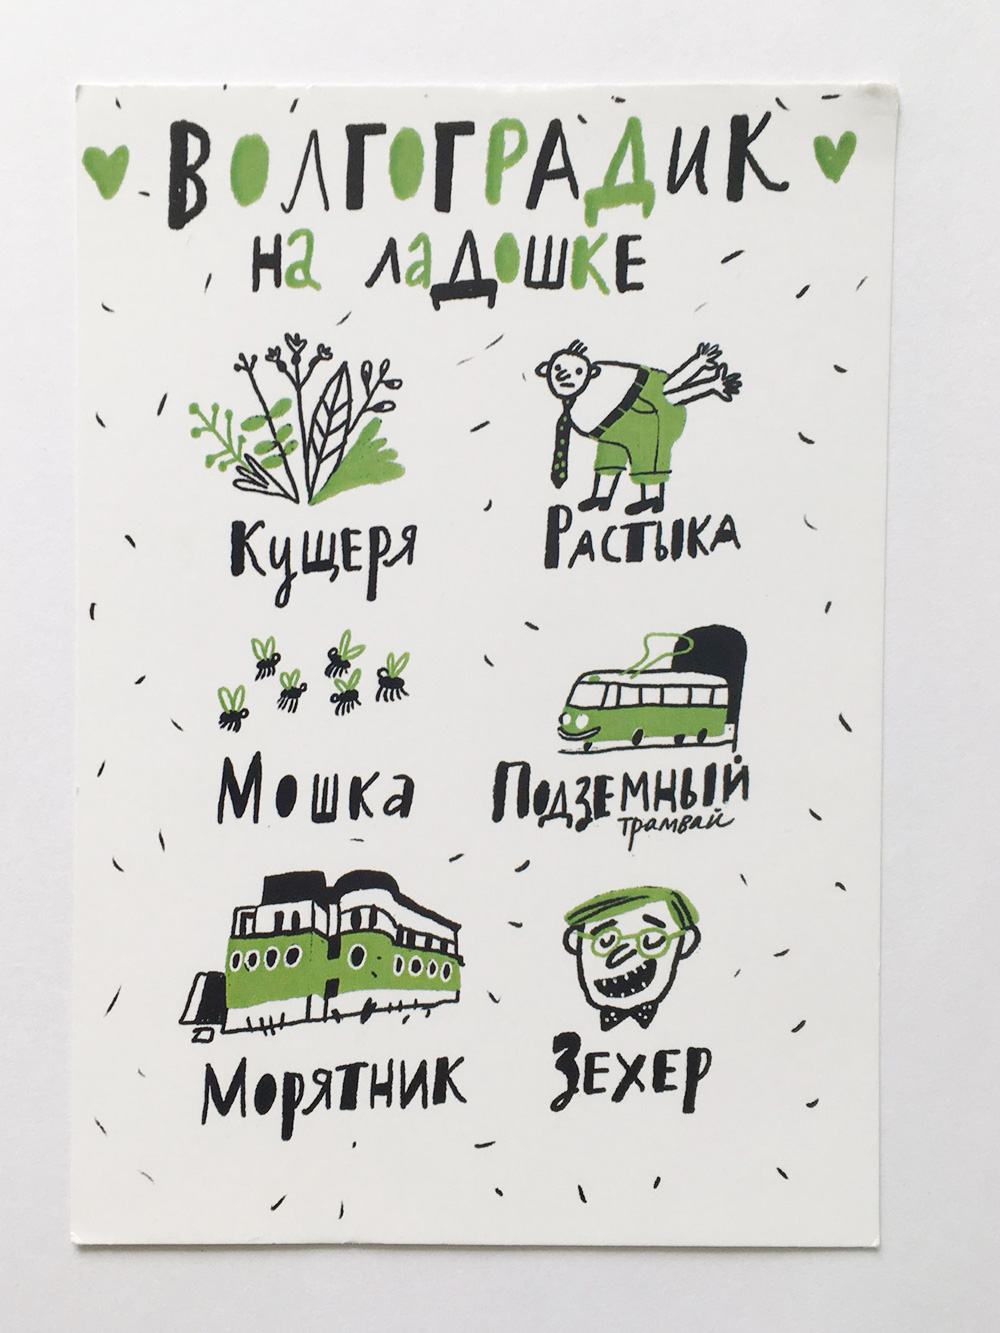 Волгоградик
на ладошке
Кущеря
Растыка
Мошка
Подземный
трамвай
Морятник
Зехер